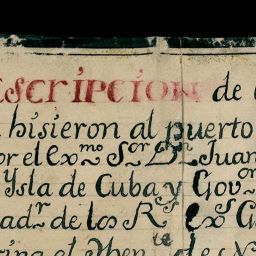 escripcion de
hisieron al puerto
or el Ex.mo S.or D.n Juan
Ysla de Cuba y Gov.on
ad.r de los R.s ex.s G